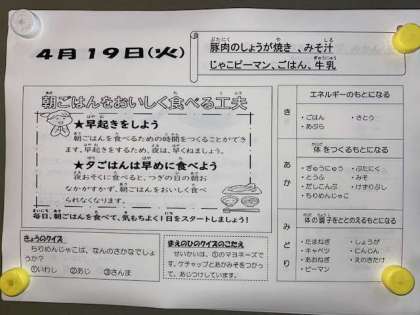 4月19日(火)
豚肉のしょうが焼き、みそ汁
じゃこピーマン、ごはん、牛乳
朝ごはんをおいしく食べる工夫
★早起きをしよう
朝ごはんを食べるための時間をつくることができ
ます。早起きをするため、夜は、早くねましょう。
★夕ごはんは早めに食べよう
夜おそくに食べると、つぎの日の朝お
なかがすかず、朝ごはんをおいしく食べ
られなくなります。
毎日、朝ごはんを食べて、気もちよく1日をスタートしましょう!
きょうのクイズ
ちりめんじゃこは、なんのさかなでしょ
うか?
①いわし ②あじ ③さんま
まえのひのクイズのこたえ
せいかいは、①のマヨネーズで
す。ケチャップとあかみそをつかっ
て、あじつけしています。
き
エネルギーのもとになる
・ごはん ・さとう
・あぶら
あか
体をつくるもとになる
・ぎゅうにゅう ・ぶたにく
・とうふ ・みそ
・だしこんぶ ・けずりぶし
・ちりめんじゃこ
みどり
体の調子をととのえるもとになる
・たまねぎ ・しょうが
・キャベツ ・にんじん
・あおねぎ ・えのきたけ
・ピーマン